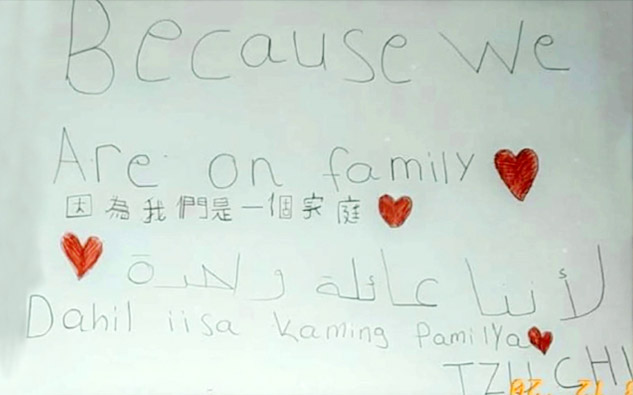 Because We
Are on family
因為我們是一個家庭
لأننا عائلة واحدة
Dahil iisa kaming pamilya
TZU CHI